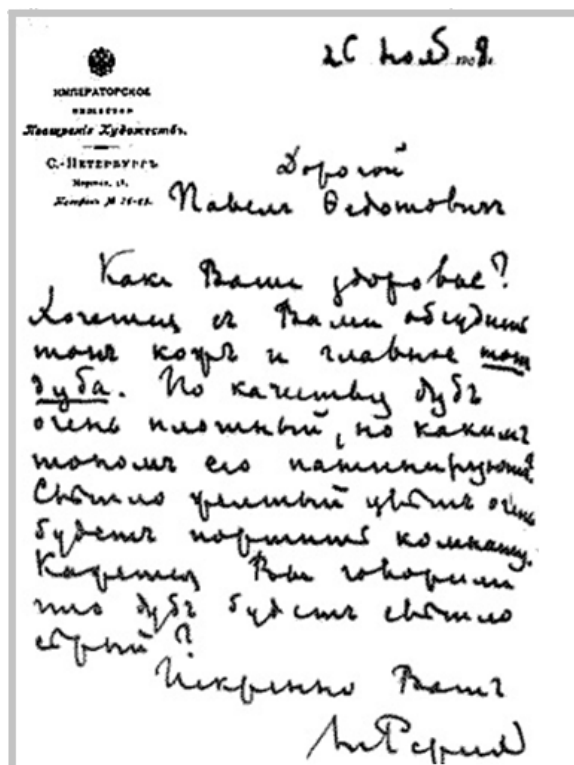 26 нояб 1908.
ИМПЕРАТОРСКОЕ
ОБЩЕСТВО
Поощренія Художествъ.
С.-ПЕТЕРБУРГЪ
Морская, 38.
Телефонъ №
Дорогой
Павелъ Ѳедотовичъ
Какъ Ваше здоровье?
Хочется съ Вами обсудить
тонъ кожъ и главное тонъ
дуба. По качеству дубъ
очень плотный, но какимъ
тономъ его патинируютъ?
Свѣтло желтый цвѣтъ очень
будетъ портить комнату.
Кажется Вы говорили
что дубъ будетъ свѣтло
сѣрый?
Искренно Вашъ